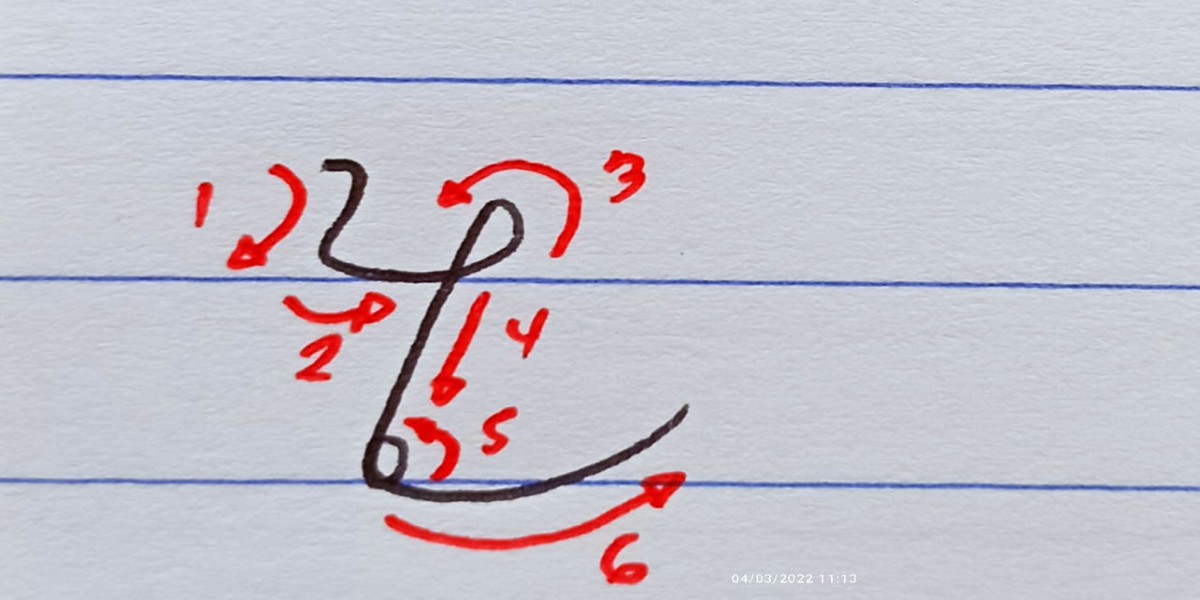 1
3
2
4
5
6
04/03/2022 11:13